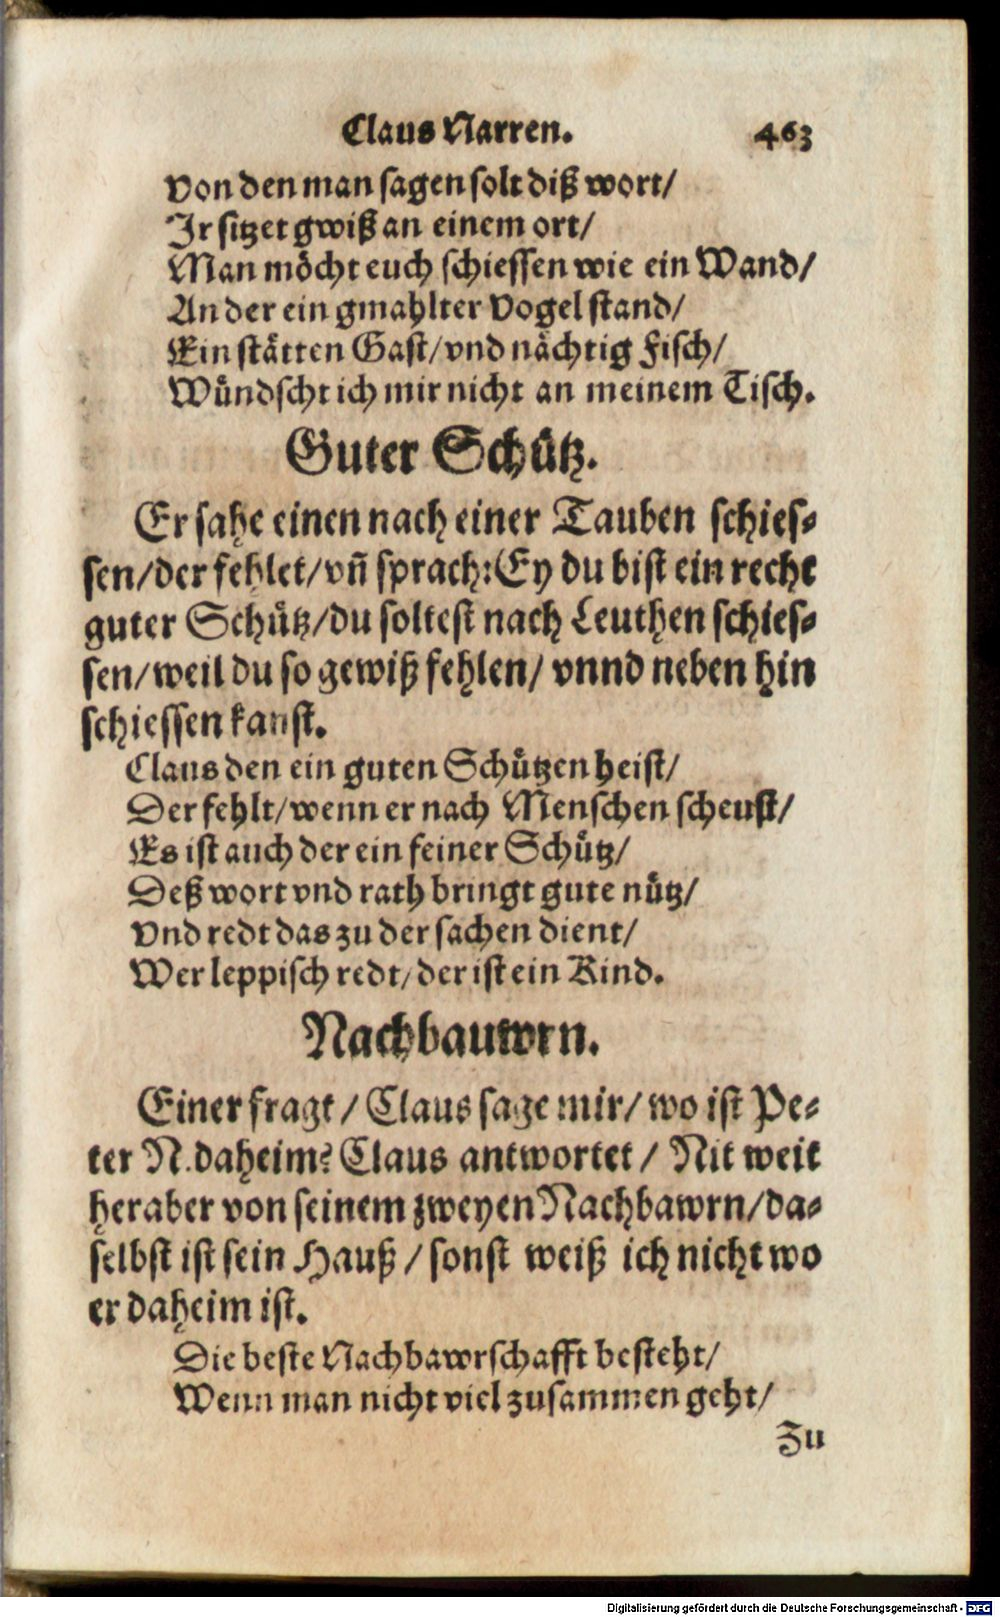 Claus Narren. 463
Von den man sagen solt diß wort/
Ir sitzet gwiß an einem ort/
Man möcht euch schiessen wie ein Wand/
An der ein gmahlter Vogel stand/
Ein stätten Gast/vnd nächtig Fisch/
Wündscht ich mir nicht an meinem Tisch.
Guter Schütz.
Er sahe einen nach einer Tauben schies-
sen/der fehlet/vñ sprach: Ey du bist ein recht
guter Schütz/du soltest nach Leuthen schies-
sen/weil du so gewiß fehlen/ vnnd neben hin
schiessen kanst.
Claus den ein guten Schützen heist/
Der fehlt/wenn er nach Menschen scheust/
Es ist auch der ein feiner Schütz/
Deß wort vnd rath bringt gute nütz/
Vnd redt das zu der sachen dient/
Wer leppisch redt/der ist ein Kind.
Nachbauwrn.
Einer fragt / Claus sage mir/ wo ist Pe-
ter N. daheim? Claus antwortet / Nit weit
heraber von seinem zweyen Nachbawrn/da-
selbst ist sein Hauß / sonst weiß ich nicht wo
er daheim ist.
Die beste Nachbawrschafft besteht/
Wenn man nicht viel zusammen geht/
Zu
Digitalisierung gefördert durch die Deutsche Forschungsgemeinschaft - DFG